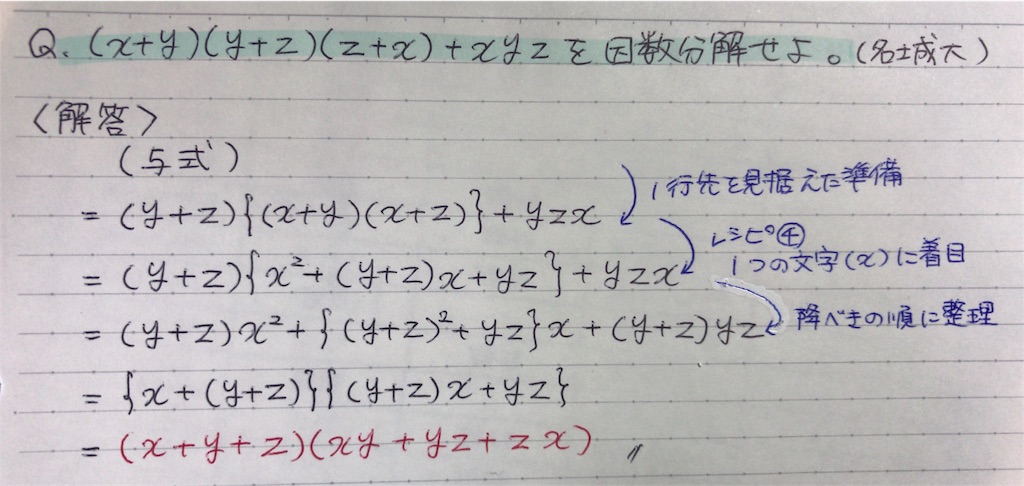 Q. (x+y)(y+z)(z+x)+xyzを因数分解せよ。(名城大)
<解答>
(与式)
= (y+z){(x+y)(x+z)}+yzx
1行先を見据えた準備
= (y+z){x²+(y+z)x+yz}+yzx
レシピ④
1つの文字(x)に着目
= (y+z)x²+{(y+z)²+yz}x+(y+z)yz
降べきの順に整理
= {x+(y+z)}{(y+z)x+yz}
= (x+y+z)(xy+yz+zx) 〃